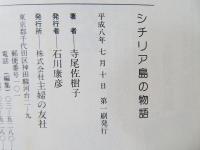 シチリア島の物語
平成八年七月十日　第一刷発行
著者―寺尾佐樹子
発行者―石川康彦
発行所―株式会社主婦の友社
東京都千代田区神田駿河台二―九
郵便番号一〇一
電話（編集）